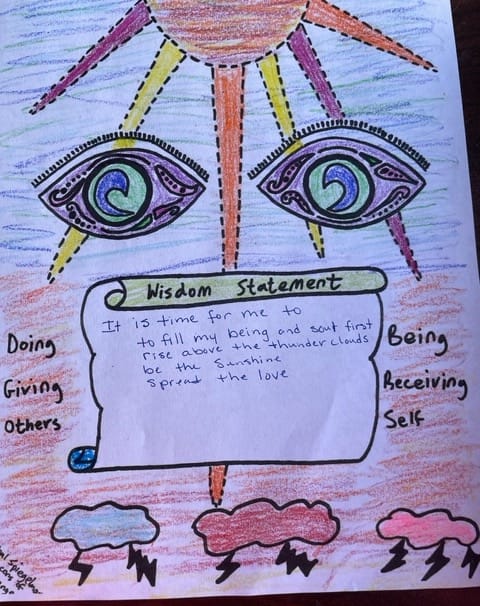 Wisdom Statement
It is time for me to
to fill my being and soul first
rise above the thunder clouds
be the sunshine
spread the love
Doing
Giving
Others
Being
Receiving
Self